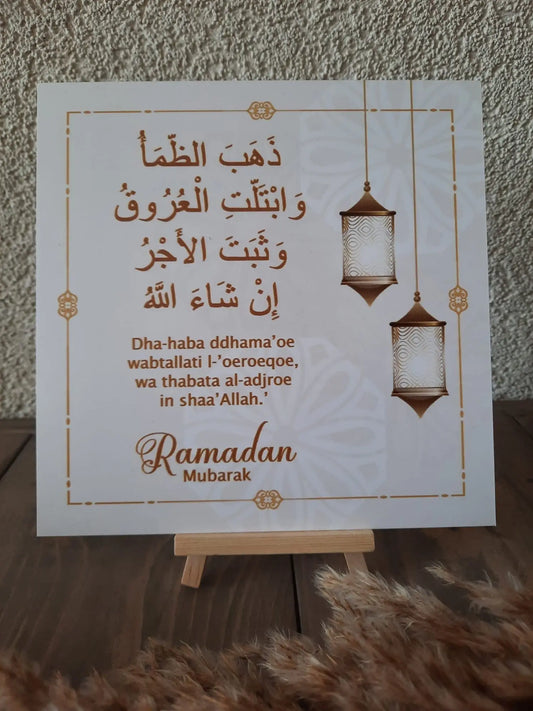 ذَهَبَ الظَّمَأُ
وَابْتَلَّتِ الْعُرُوقُ
وَثَبَتَ الأَجْرُ
إِنْ شَاءَ اللَّهُ
Dha-haba ddhama'oe
wabtallati l-'oeroeqoe,
wa thabata al-adjroe
in shaa'Allah.'
Ramadan
Mubarak